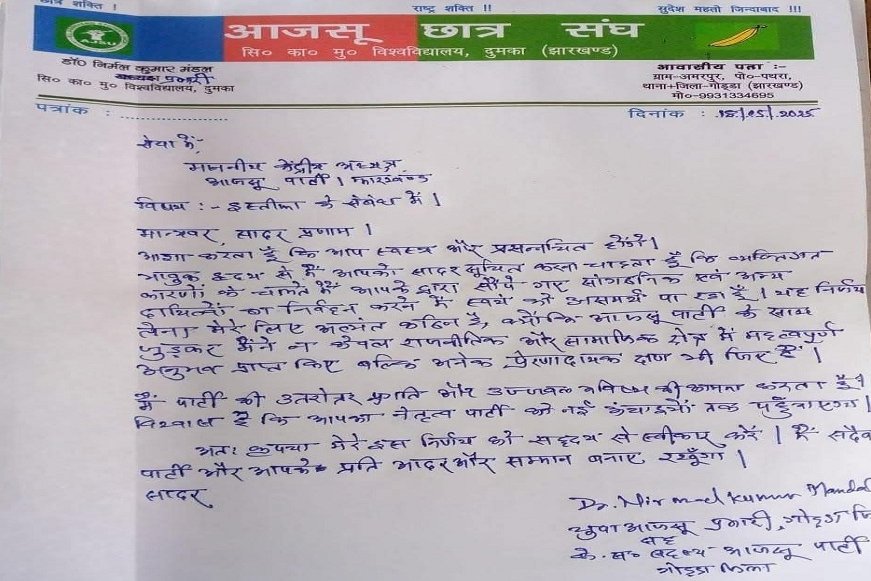 छात्र शक्ति !
राष्ट्र शक्ति !!
सुदेश महतो जिन्दाबाद !!!
AJSU
आजसू छात्र संघ
सि० का० मु० विश्वविद्यालय, दुमका (झारखण्ड)
डॉ० निर्मल कुमार मंडल
प्रभारी
सि० का० मु० विश्वविद्यालय, दुमका
आवासीय पता :-
ग्राम-अमरपुर, पो०-पथरा,
थाना+जिला-गोड्डा (झारखण्ड)
मो०-9931334695
पत्रांक : ..............................
दिनांक : 15/05/2025
सेवा में,
माननीय केंद्रीय अध्यक्ष
आजसू पार्टी । झारखण्ड
विषय :- इस्तीफा के संबंध में ।
मान्यवर, सादर प्रणाम ।
आशा करता हूँ कि आप स्वस्थ और प्रसन्नचित होंगे ।
भावुक हृदय से मैं आपको सादर सूचित करना चाहता हूँ कि व्यक्तिगत
कारणों के चलते मैं आपके द्वारा सौंपे गए सांगठनिक एवं अन्य
दायित्वों का निर्वहन करने में स्वयं को असमर्थ पा रहा हूँ । यह निर्णय
लेना मेरे लिए अत्यंत कठिन है, क्योंकि आजसू पार्टी के साथ
जुड़कर मैंने न केवल राजनीतिक और सामाजिक क्षेत्र में महत्वपूर्ण
अनुभव प्राप्त किए बल्कि अनेक प्रेरणादायक क्षण भी जिए हैं ।
मैं पार्टी की उतरोतर प्रगति और उज्जवल भविष्य की कामना करता हूँ ।
विश्वास है कि आपका नेतृत्व पार्टी को नई ऊंचाइयों तक पहुँचाएगा ।
अतः कृपया मेरे इस निर्णय को सहृदय से स्वीकार करें । मैं सदैव
पार्टी और आपके प्रति आदर और सम्मान बनाए रखूँगा ।
सादर
Dr. Nirmal Kumar Mandal
युवा आजसू प्रभारी, गोड्डा जि
सह
के० स० सदस्य आजसू पार्टी
गोड्डा जिला